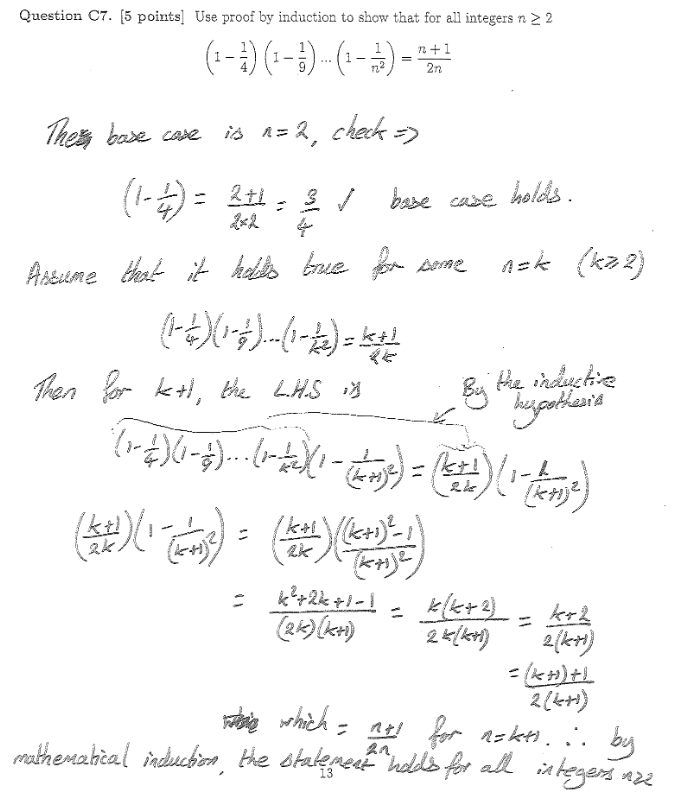 Question C7. [5 points] Use proof by induction to show that for all integers n ≥ 2
(1 − 1/4)(1 − 1/9)...(1 − 1/n²) = n+1/2n
The base case is n=2, check =>
(1-1/4) = 2+1/2×2 = 3/4 ✓ base case holds.
Assume that it holds true for some n=k (k≥2)
(1-1/4)(1-1/9)...(1-1/k²) = k+1/2k
Then for k+1, the L.H.S is
By the inductive
hypothesis
(1-1/4)(1-1/9)...(1-1/k²)(1-1/(k+1)²) = (k+1/2k)(1-1/(k+1)²)
(k+1/2k)(1-1/(k+1)²) = (k+1/2k)((k+1)²-1/(k+1)²)
= k²+2k+1-1/(2k)(k+1) = k(k+2)/2k(k+1) = k+2/2(k+1)
= (k+1)+1/2(k+1)
which = n+1/2n for n=k+1. ∴ by
mathematical induction, the statement holds for all integers n≥2
13